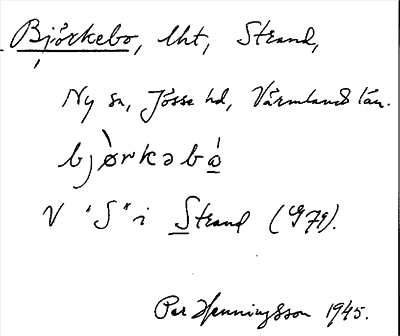 Björkebo, lht, Strand,
Ny sn, Jösse hd, Värmlands län.
bjòrkəbó
V "S" i Strand (9 79).
Per Henningsson 1945.